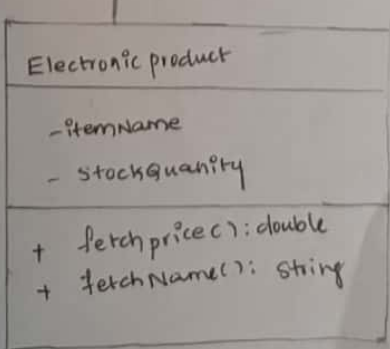 Electronic product
- itemName
- stockQuanity
+ fetchprice(): double
+ fetchName(): string